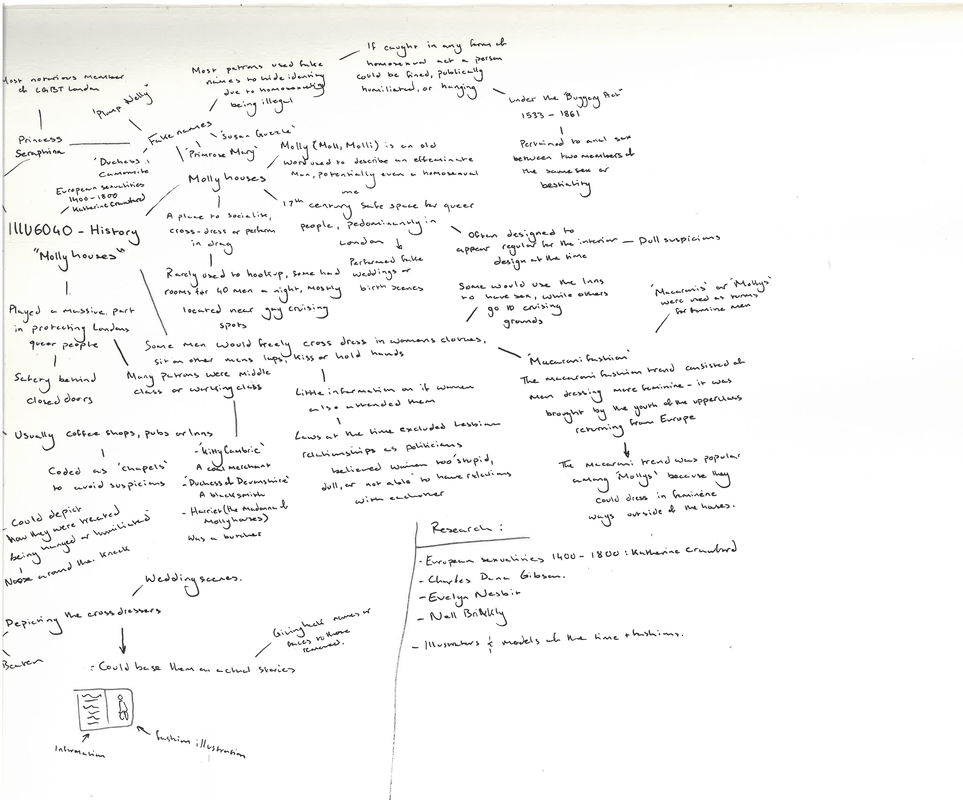 Most notorious member
of LGBT London
Princess
Seraphina
'Pump Nelly'
Fake names
'Susan Guzzle'
'Primrose Mary'
'Duchess
Camomile
European sexualities
1400-1800
Katherine Crawford
Most patrons used fake
names to hide identity
due to homosexuality
being illegal
If caught in any form of
homosexual act a person
could be fined, publically
humiliated, or hanging
Under the 'Buggery Act'
1533 - 1861
Pertained to anal sex
between two members of
the same sex or
bestiality
Molly houses
Molly (Moll, Molli) is an old
word used to describe an effeminate
man, potentially even a homosexual
me
ILLU6040 - History
"Molly houses"
A place to socialise,
cross-dress or perform
in drag
17th century safe space for queer
people, pedominantly in
London
Performed fake
weddings or
birth scenes
Often designed to
appear regular for the interior — Dull suspicions
design at the time
Rarely used to hookup, some had
rooms for 40 men a night, mostly
located near gay cruising
spots
Some would use the Inns
to have sex, while others
go to cruising
grounds
'Macaronis' or 'Mollys'
were used as terms
for feminine men
Played a massive part
in protecting Londons
queer people
Safety behind
closed doors
Some men would freely cross dress in womens clothes,
sit on other mens laps, kiss or hold hands
Many patrons were middle
class or working class
Little information on if women
also attended them
Laws at the time excluded Lesbian
relationships as politicians
believed women too 'stupid,
dull, or not able' to have relations
with eachother
'Macaroni fashion'
The macaroni fashion trend consisted of
men dressing more feminine - it was
brought by the youth of the upperclass
returning from Europe
The macaroni trend was popular
among 'Mollys' because they
could dress in feminine
ways outside of the houses.
Usually coffee shops, pubs or Inns
Coded as 'chapels'
to avoid suspicions
- 'Kitty Cambric'
A coal merchant
- Duchess of Devonshire'
A blacksmith
- Harriet (the Madonna of
Molly houses)
was a butcher
- Could depict
how they were treated
being hanged or humiliated
Noose around the knack
Wedding scenes.
Depicting the cross dressers
Beaten
: Could base them on actual stories
Giving back names or
faces to those
Information
fashion illustration
Research :
- European sexualities 1400 - 1800 : Katherine Crawford
- Charles Dana Gibson.
- Evelyn Nesbit
- Nell
- Illustrators & models of the time + fashions.